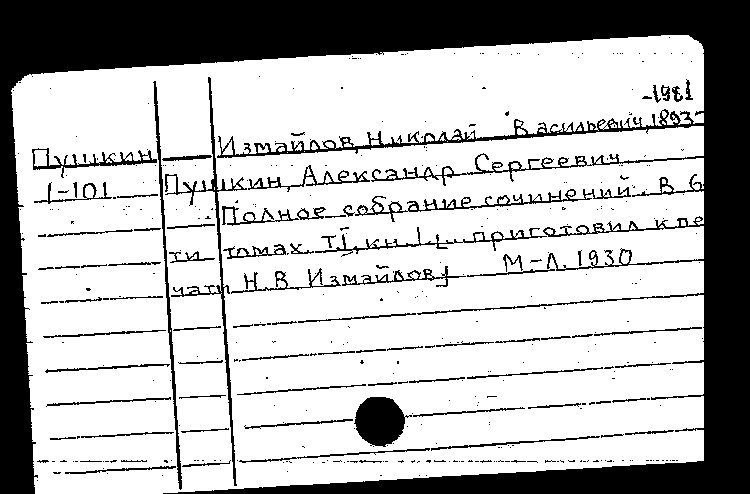 -1981
Измайлов, Николай Васильевич, 1893-
Пушкин
1-101 Пушкин, Александр Сергеевич
Полное собрание сочинений. В 6
ти томах. Т.I, кн. 1. приготовил к пе
чати Н.В. Измайлов М.-Л. 1930